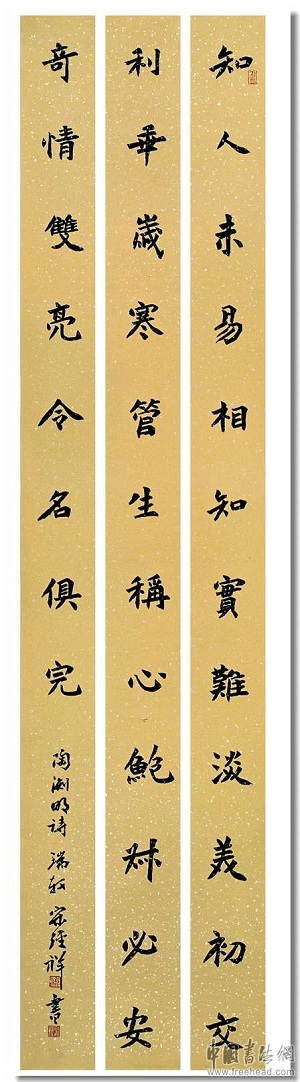 知人未易相知實難淡美初交
利乖歲寒管生稱心鮑叔必安
奇情雙亮令名俱完
陶渕明詩 經祥 書
中國書法網
www.freehead.com